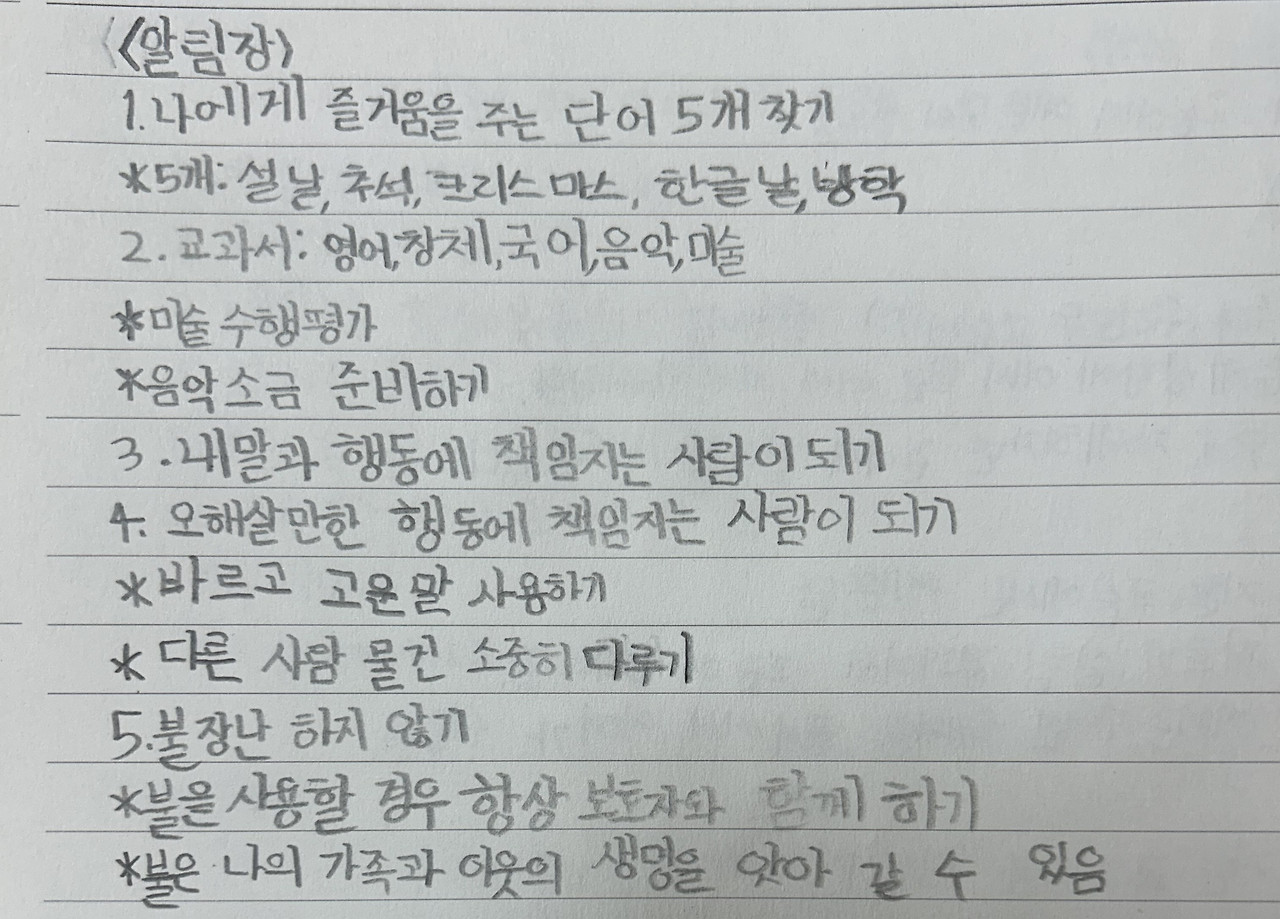 <알림장>
1.나에게 즐거움을 주는 단어 5개 찾기
*5개: 설날, 추석, 크리스마스, 한글날, 방학
2. 교과서: 영어, 창체, 국어, 음악, 미술
*미술 수행평가
*음악소금 준비하기
3. 내말과 행동에 책임지는 사람이 되기
4. 오해살만한 행동에 책임지는 사람이 되기
*바르고 고운말 사용하기
* 다른 사람 물건 소중히 다루기
5.불장난 하지 않기
*불을 사용할 경우 항상 보호자와 함께 하기
*불은 나의 가족과 이웃의 생명을 앗아 갈 수 있음